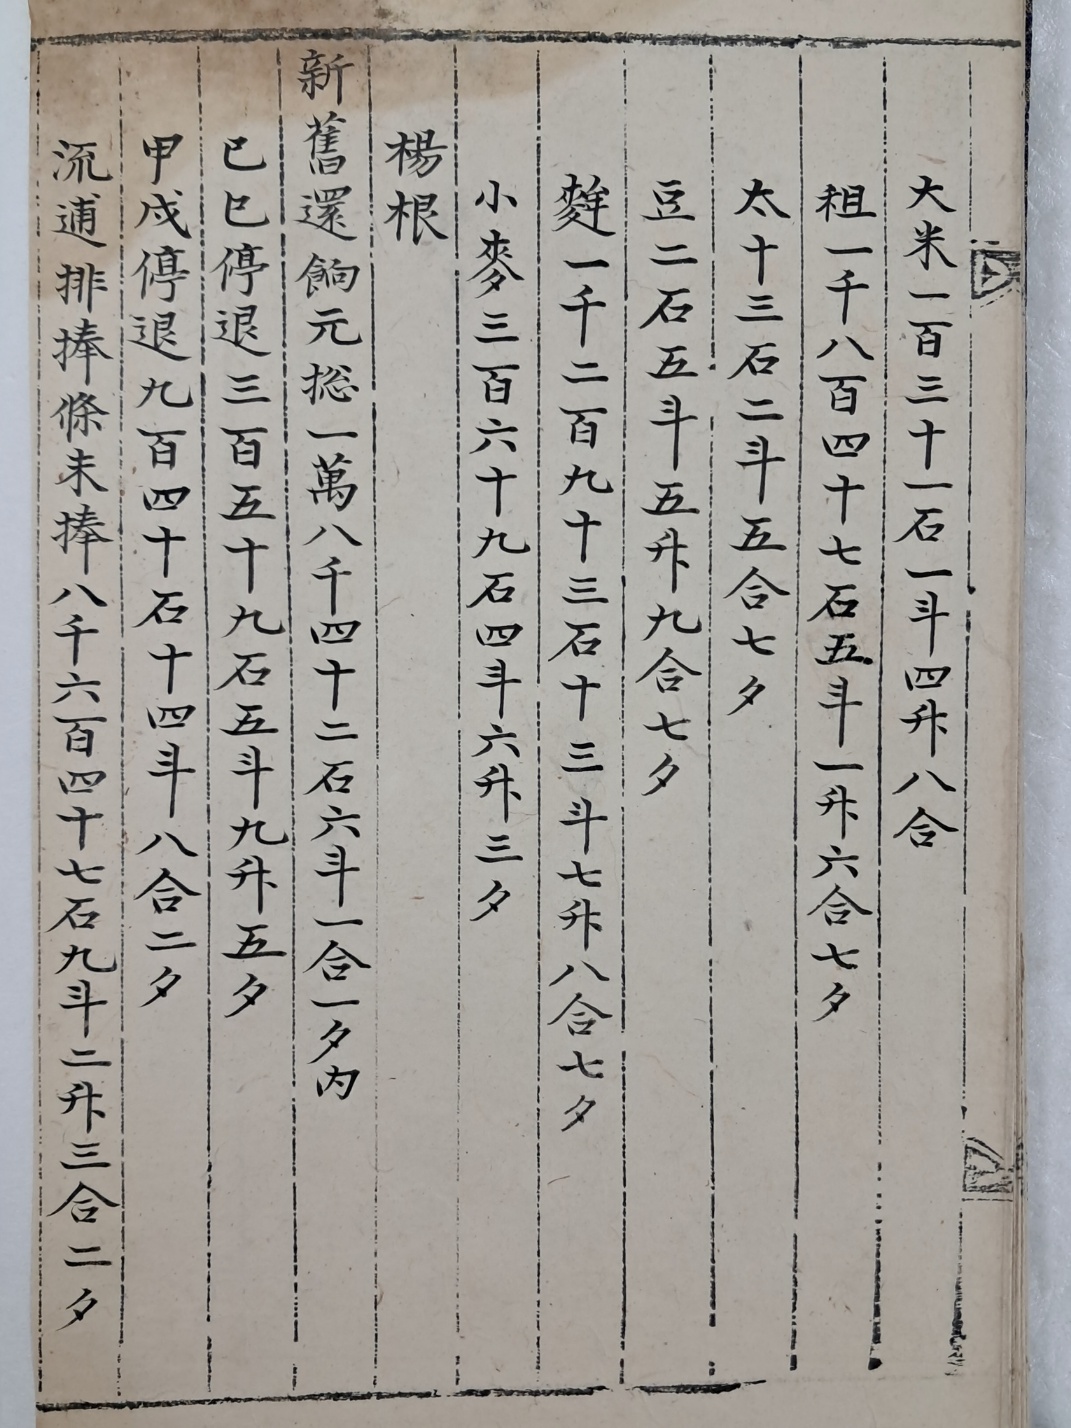 大米一百三十一石一斗四升八合
租一千八百四十七石五斗一升六合七夕
太十三石二斗五合七夕
豆二石五斗五升九合七夕
麰一千二百九十三石十三斗七升八合七夕
小麥三百六十九石四斗六升三夕
楊根
新舊還餉元摠一萬八千四十二石六斗一合一夕內
已巳停退三百五十九石五斗九升五夕
甲戌停退九百四十石十四斗八合二夕
流逋排捧條未捧八千六百四十七石九斗二升三合二夕